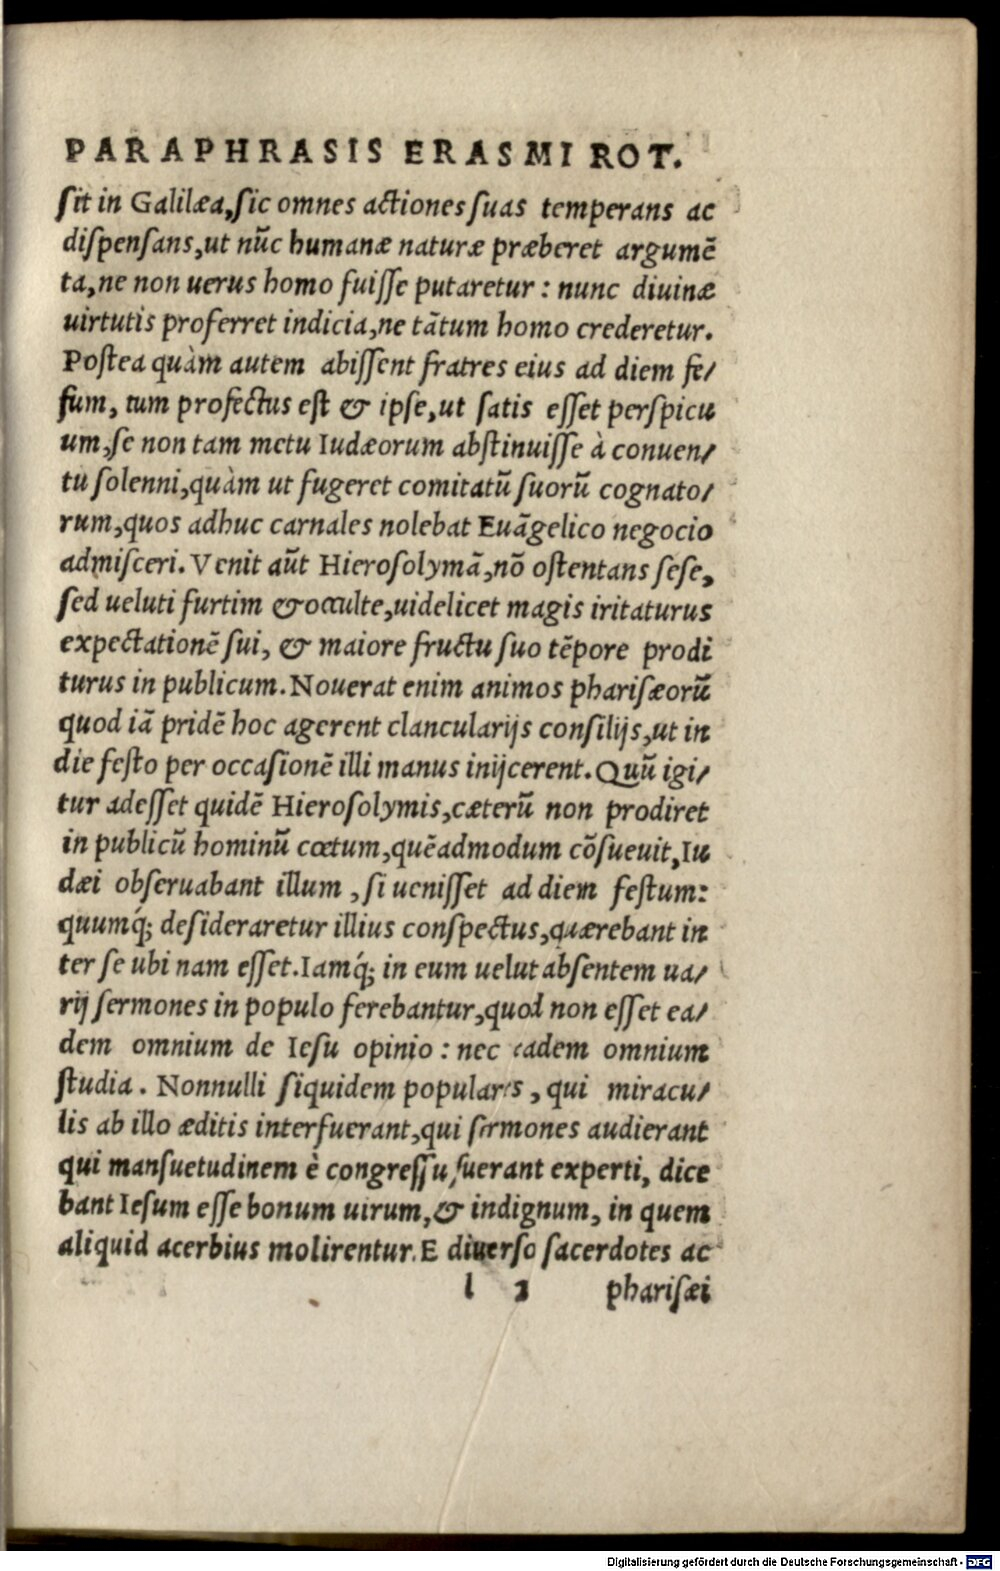 PARAPHRASIS ERASMI ROT.
sit in Galilæa, sic omnes actiones suas temperans ac
dispensans, ut nūc humanæ naturæ præberet argumē
ta, ne non uerus homo fuisse putaretur: nunc diuinæ
uirtutis proferret indicia, ne tātum homo crederetur.
Postea quàm autem abissent fratres eius ad diem fe/
stum, tum profectus est & ipse, ut satis esset perspicu
um, se non tam metu Iudæorum abstinuisse à conuen/
tu solenni, quàm ut fugeret comitatū suorū cognato/
rum, quos adhuc carnales nolebat Euāgelico negocio
admisceri. Venit aūt Hierosolymā, nō ostentans sese,
sed ueluti furtim & occulte, uidelicet magis iritaturus
expectationē sui, & maiore fructu suo tēpore prodi
turus in publicum. Nouerat enim animos pharisæorū
quod iā pridē hoc agerent clancularijs consilijs, ut in
die festo per occasionē illi manus inijcerent. Quū igi/
tur adesset quidē Hierosolymis, cæterū non prodiret
in publicū hominū cœtum, quēadmodum cōsueuit, Iu
dæi obseruabant illum, si uenisset ad diem festum:
quumq́; desideraretur illius conspectus, quærebant in
ter se ubi nam esset. Iamq́; in eum uelut absentem ua/
rij sermones in populo ferebantur, quod non esset ea/
dem omnium de Iesu opinio: nec eadem omnium
studia. Nonnulli siquidem populares, qui miracu/
lis ab illo æditis interfuerant, qui sermones audierant
qui mansuetudinem è congressu fuerant experti, dice
bant Iesum esse bonum uirum, & indignum, in quem
aliquid acerbius molirentur. E diuerso sacerdotes ac
l 2 pharisæi
Digitalisierung gefördert durch die Deutsche Forschungsgemeinschaft - DFG